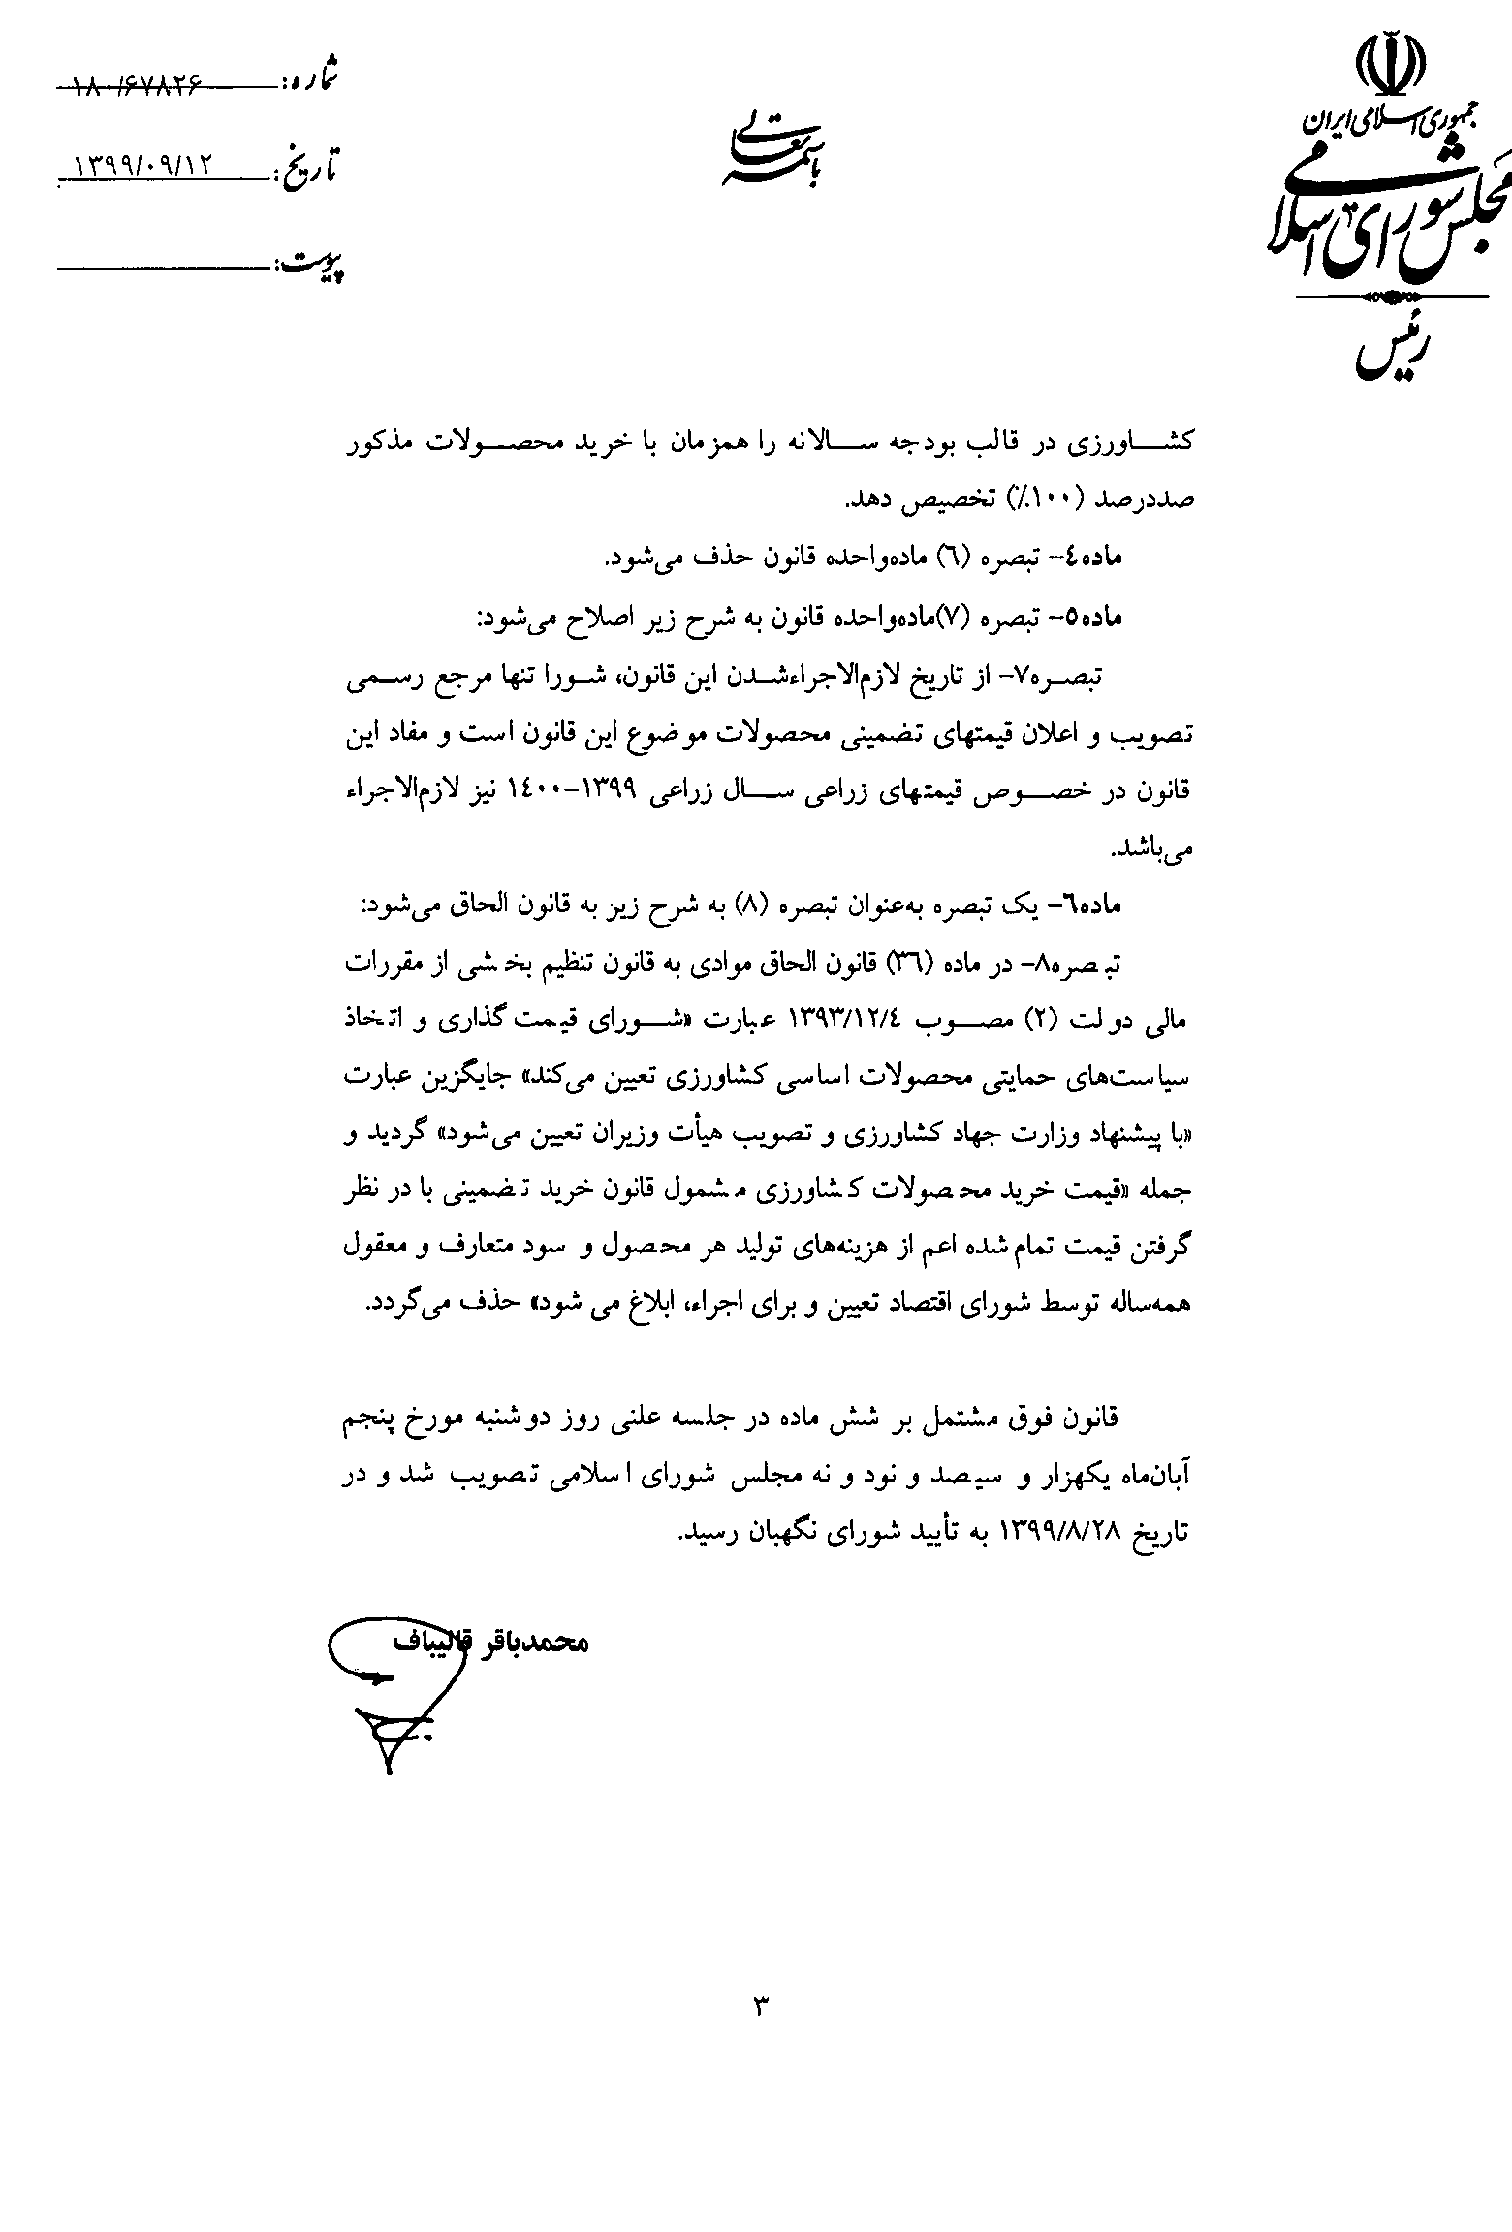 جمهوری اسلامی ایران
مجلس شورای اسلامی
رئیس
باسمه تعالی
شماره: ۱۸۰/۶۷۸۲۶
تاریخ: ۱۳۹۹/۰۹/۱۲
پیوست:
کشاورزی در قالب بودجه سالانه را همزمان با خرید محصولات مذکور
صددرصد (۱۰۰٪) تخصیص دهد.
ماده٤- تبصره (٦) ماده‌واحده قانون حذف می‌شود.
ماده٥- تبصره (۷)ماده‌واحده قانون به شرح زیر اصلاح می‌شود:
تبصره۷- از تاریخ لازم‌الاجراءشدن این قانون، شورا تنها مرجع رسمی
تصویب و اعلان قیمتهای تضمینی محصولات موضوع این قانون است و مفاد این
قانون در خصوص قیمتهای زراعی سال زراعی ۱۳۹۹-۱٤۰۰ نیز لازم‌الاجراء
می‌باشد.
ماده٦- یک تبصره به‌عنوان تبصره (۸) به شرح زیر به قانون الحاق می‌شود:
تبصره۸- در ماده (۳٦) قانون الحاق موادی به قانون تنظیم بخشی از مقررات
مالی دولت (۲) مصوب ۱۳۹۳/۱۲/٤ عبارت «شورای قیمت گذاری و اتخاذ
سیاست‌های حمایتی محصولات اساسی کشاورزی تعیین می‌کند» جایگزین عبارت
«با پیشنهاد وزارت جهاد کشاورزی و تصویب هیأت وزیران تعیین می‌شود» گردید و
جمله «قیمت خرید محصولات کشاورزی مشمول قانون خرید تضمینی با در نظر
گرفتن قیمت تمام شده اعم از هزینه‌های تولید هر محصول و سود متعارف و معقول
همه‌ساله توسط شورای اقتصاد تعیین و برای اجراء، ابلاغ می شود» حذف می‌گردد.
قانون فوق مشتمل بر شش ماده در جلسه علنی روز دوشنبه مورخ پنجم
آبان‌ماه یکهزار و سیصد و نود و نه مجلس شورای اسلامی تصویب شد و در
تاریخ ۱۳۹۹/۸/۲۸ به تأیید شورای نگهبان رسید.
محمدباقر قالیباف
۳